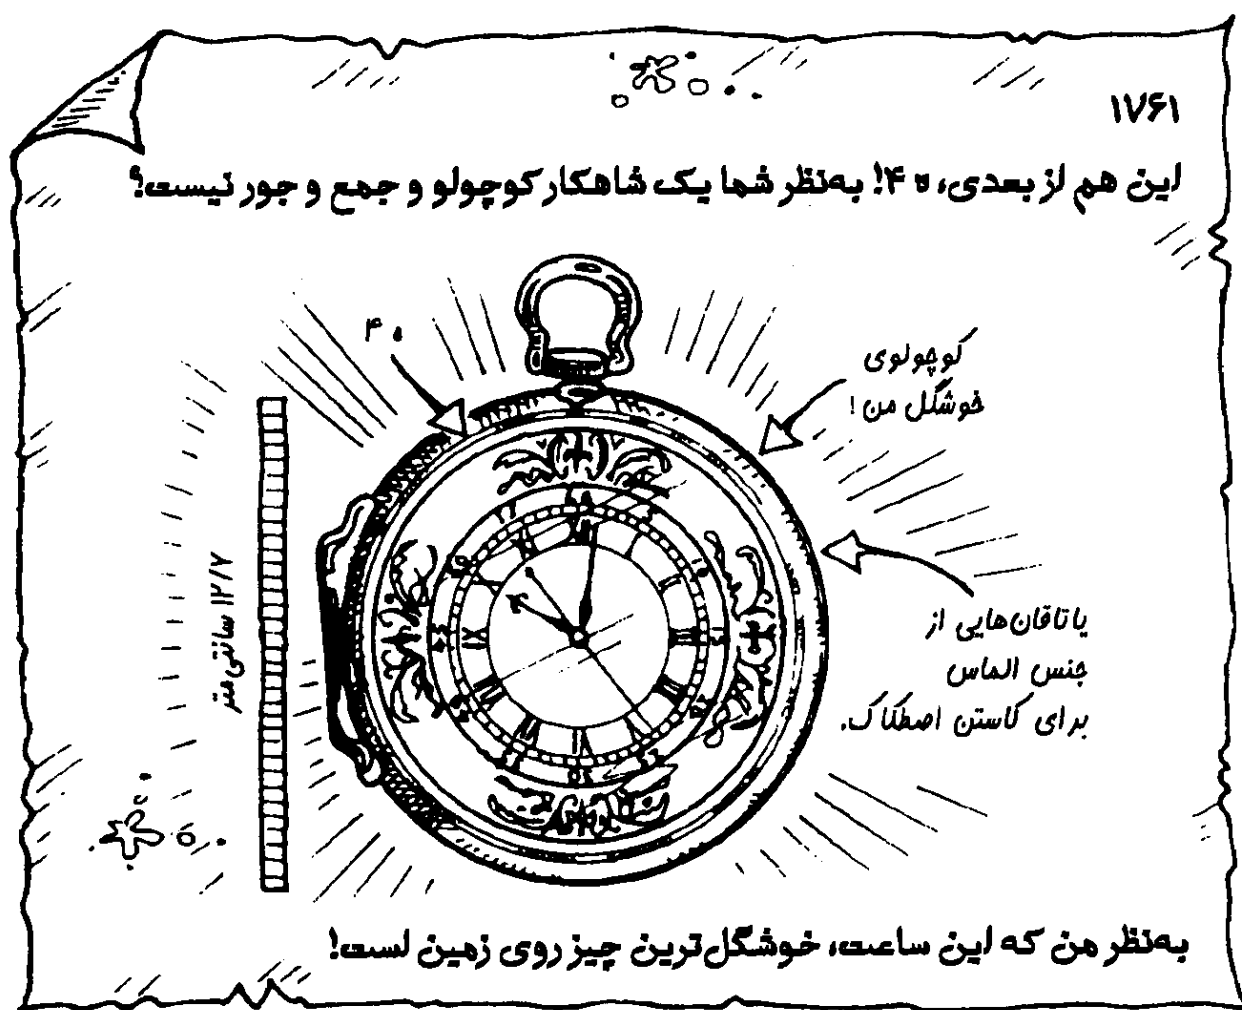 ۱۷۶۱
این هم از بعدی، ه ۴! به‌نظر شما یک شاهکار کوچولو و جمع و جور نیست؟
ه ۴
کوچولوی
خوشگل من!
۱۲/۷ سانتی‌متر
یاتاقان‌هایی از
جنس الماس
برای کاستن اصطکاک.
به‌نظر من که این ساعت، خوشگل‌ترین چیز روی زمین است!